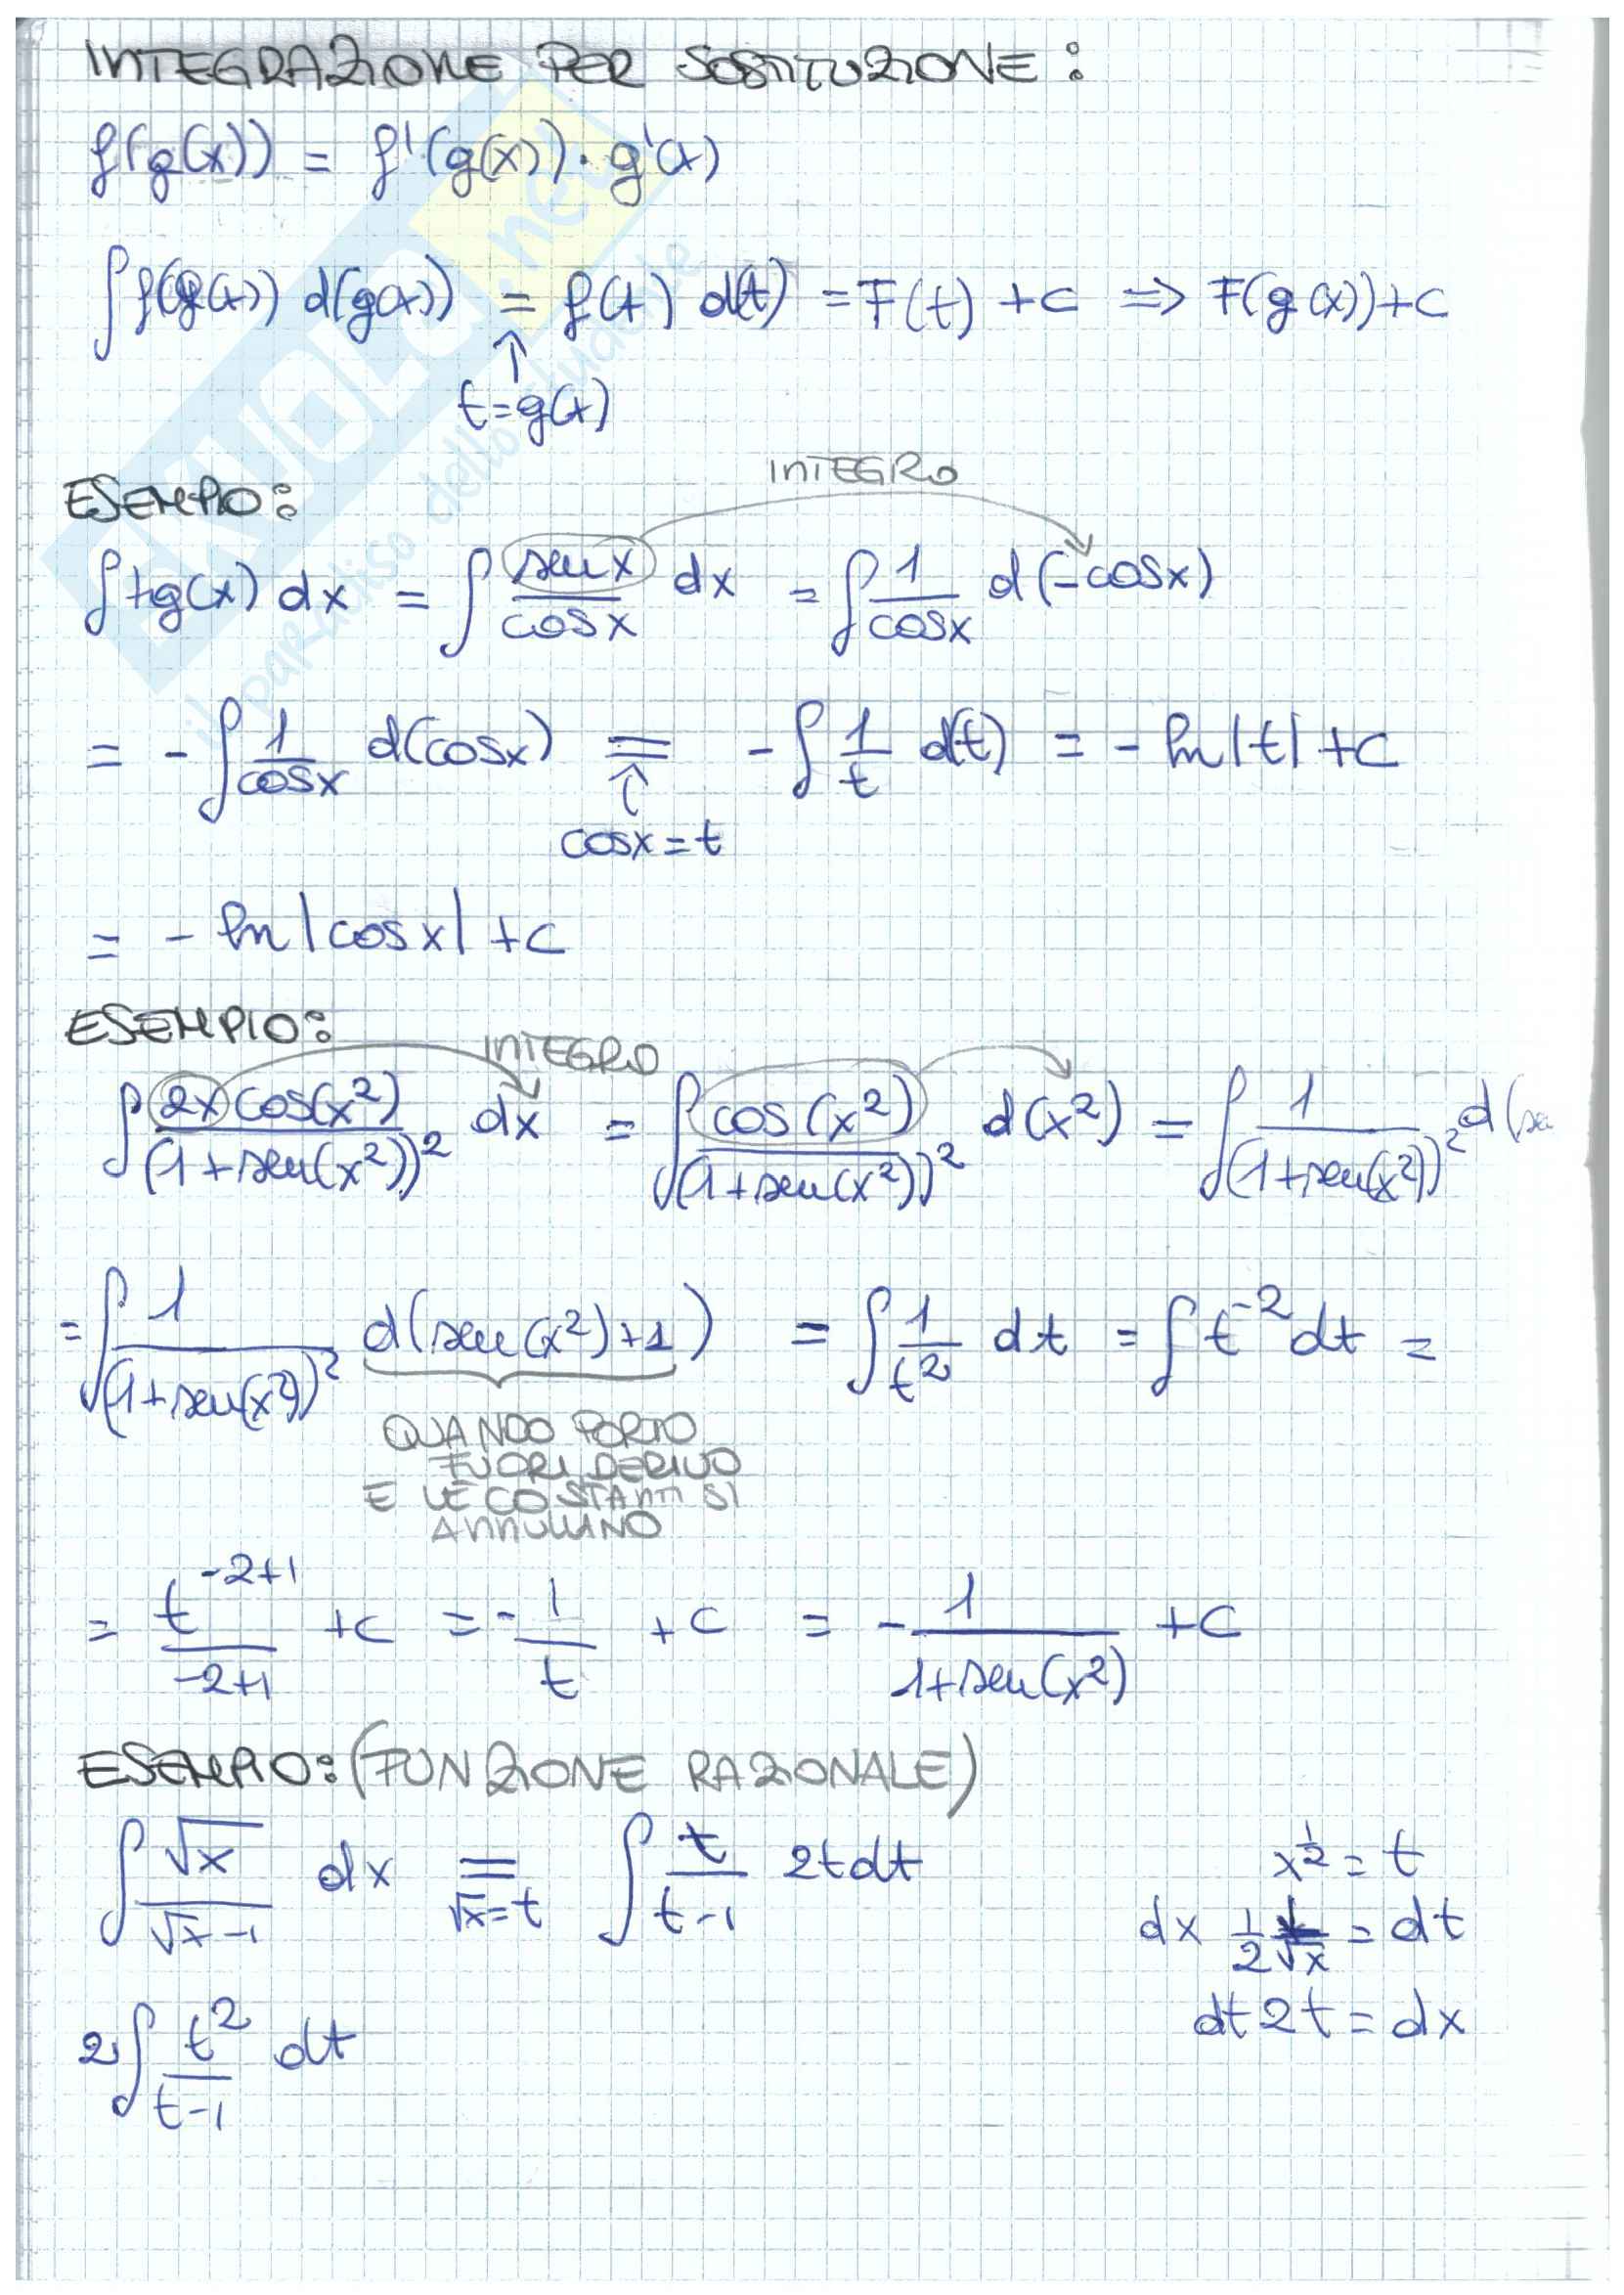 INTEGRAZIONE PER SOSTITUZIONE:
f(g(x)) = f'(g(x))·g'(x)
∫f(g(x)) d(g(x)) = f(t) d(t) = F(t) +c => F(g(x))+c
↑
t=g(x)
INTEGRO
ESEMPIO:
∫tg(x) dx = ∫ senx/cosx dx = ∫ 1/cosx d(-cosx)
= -∫ 1/cosx d(cosx) = -∫ 1/t d(t) = -ln|t| +c
↑
cosx=t
= -ln|cosx| +c
ESEMPIO:
INTEGRO
∫ 2x cos(x²)/(1+sen(x²))² dx = ∫ cos(x²)/(1+sen(x²))² d(x²) = ∫ 1/(1+sen(x²))² d(se
= ∫ 1/(1+sen(x²))² d(sen(x²)+1) = ∫ 1/t² dt = ∫ t⁻² dt =
QUANDO PORTO
FUORI DERIVO
E LE COSTANTI SI
ANNULLANO
= t^(-2+1)/(-2+1) +c = -1/t +c = -1/(1+sen(x²)) +c
ESEMPIO: (FUNZIONE RAZIONALE)
∫ √x/(√x-1) dx = ∫ t/(t-1) 2tdt
√x=t
x^(1/2) = t
dx 1/2 1/√x = dt
dt2t = dx
2∫ t²/(t-1) dt
SKUOLA.net
il paradiso dello studente